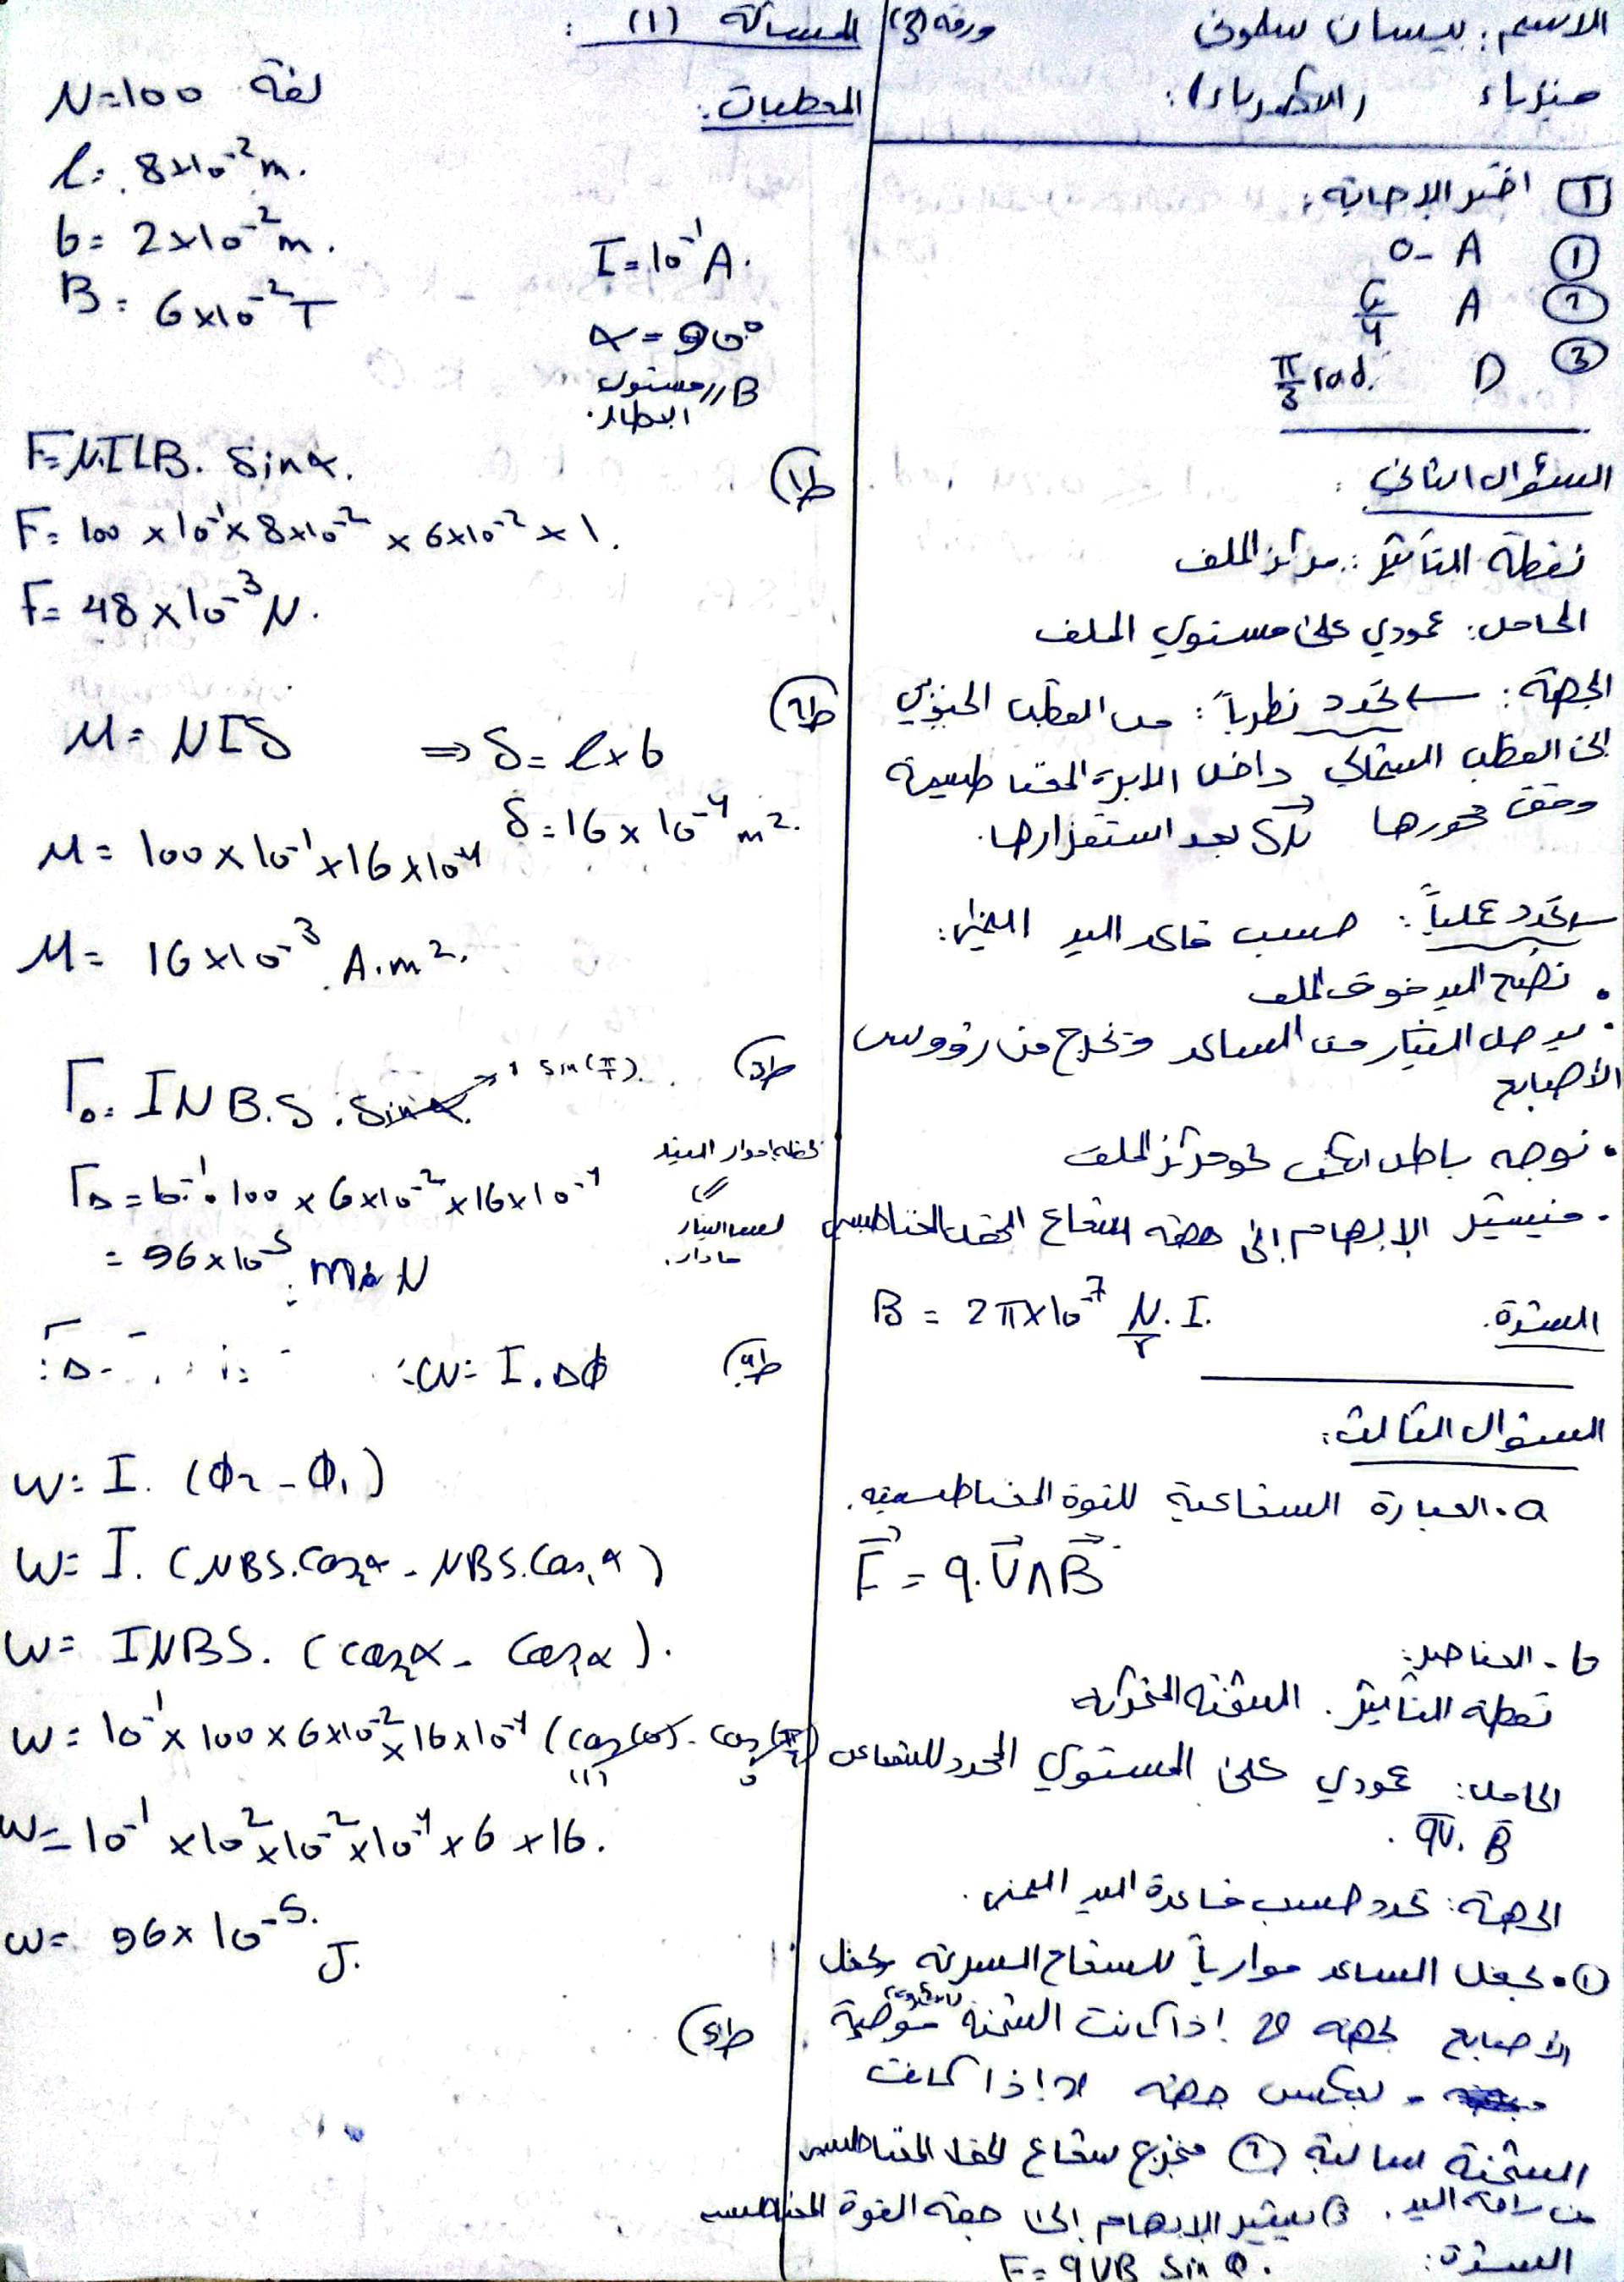 الاسم: بيسان سلمونى ورقة (2)
فيزياء (الكهرباء):
1 اختر الإجابة:
1 A - 0
2 A G/4
3 D π/3 rad.
السؤال الثاني:
نقطة التأثير: مركز الملف
الحامل: عمودي على مستوي الملف
الجهة: تحدد نظرياً: من القطب الجنوبي
إلى القطب الشمالي داخل الابرة المغناطيسية
وفق محورها بعد استقرارها.
تحدد عملياً: حسب قاعد اليد اليمنى:
• نضع اليد فوق الملف
• يدخل التيار من الساعد وتخرج من رؤوس
الأصابع
• نوجه باطن الكف نحو مركز الملف
• فيشير الإبهام إلى جهة شعاع الحقل المغناطيسي
الشدة: B = 2π×10⁻⁷ N/r . I.
السؤال الثالث:
a. العبارة الشعاعية للقوة المغناطيسية.
F = q.V∧B
b - العناصر:
نقطة التأثير. الشحنة المتحركة
الحامل: عمودي على المستوي المحدد للشعاعين
qV. B.
الجهة: تحدد حسب قاعدة اليد اليمنى.
1 • نجعل الساعد موازياً لشعاع السرعة ونجعل
الأصابع لجهة v إذا كانت الشحنة موجبة
- بعكس جهة v إذا كانت
الشحنة سالبة 2 فيخرج شعاع الحقل المغناطيسي
من راحة اليد. 3 يشير الإبهام إلى جهة القوة المغناطيسية
الشدة: F = qVB Sin θ.
المسألة (1):
المعطيات: N=100 لفة
l = 8×10⁻² m.
b = 2×10⁻² m. I = 10⁻¹ A.
B = 6×10⁻² T
α = 90°
B // مستوي
الإطار.
ط1 F = N.ILB. Sinα.
F = 100 × 10⁻¹ × 8×10⁻² × 6×10⁻² × 1.
F = 48 × 10⁻³ N.
ط2 M = NIS ⇒ S = l×b
S = 16 × 10⁻⁴ m².
M = 100 × 10⁻¹ × 16×10⁻⁴
M = 16×10⁻³ A.m².
ط3 Γ₀ = INB.S. Sinα → 1 Sin(π/2).
لحظة إمرار التيار
ΓΔ = 10⁻¹ . 100 × 6×10⁻² × 16×10⁻⁴
مادار.
= 96×10⁻⁵ m N
ط4 W = I.Δϕ
W = I. (ϕ₂ - ϕ₁)
W = I. (NBS.Cos₂α - NBS.Cos₁α)
W = INBS. (Cos₂α - Cos₁α).
W = 10⁻¹ × 100 × 6×10⁻² × 16×10⁻⁴ (Cos(0) - Cos(π/2))
(1) 0
W = 10⁻¹ × 10² × 10⁻² × 10⁻⁴ × 6 × 16.
W = 96×10⁻⁵. J.
ط5